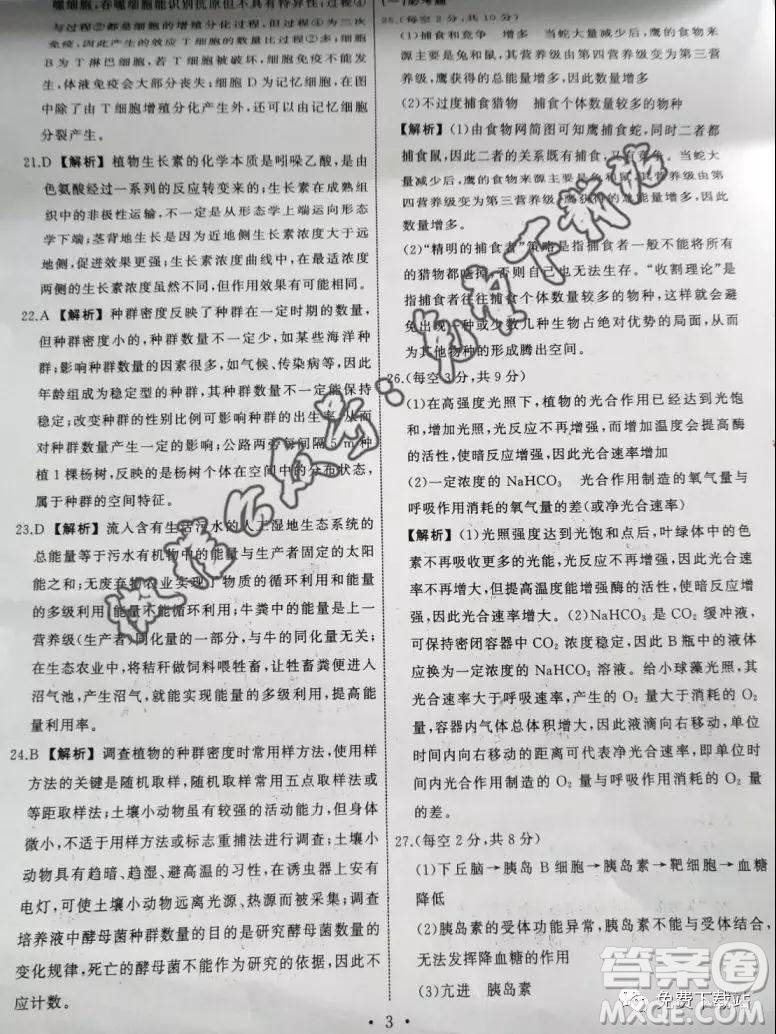 噬细胞，吞噬细胞能识别抗原但不具有特异性；过程④
与过程②都是细胞的增殖分化过程，但过程④为二次
免疫，因此产生的效应 T 细胞的数量比过程②多；细胞
B 为 T 淋巴细胞，若 T 细胞被破坏，细胞免疫不能发
生，体液免疫会大部分丧失；细胞 D 为记忆细胞，在图
中除了由 T 细胞增殖分化产生外，还可以由记忆细胞
分裂产生。
21.D 【解析】植物生长素的化学本质是吲哚乙酸，是由
色氨酸经过一系列的反应转变来的；生长素在成熟组
织中的非极性运输，不一定是从形态学上端运向形态
学下端；茎背地生长是因为近地侧生长素浓度大于远
地侧，促进效果更强；生长素浓度曲线中，在最适浓度
两侧的生长素浓度虽然不同，但作用效果有可能相同。
22.A 【解析】种群密度反映了种群在一定时期的数量，
但种群密度小的，种群数量不一定少，如某些海洋群
群；影响种群数量的因素很多，如气候、传染病等，因此
年龄组成为稳定型的种群，种群数量不一定能保持
稳定；改变种群的性别比例可影响种群的出生率，从而
对种群数量产生一定的影响；公路两旁每间隔 5 m 种
植 1 棵杨树，反映的是杨树个体在空间中的分布状态，
属于种群的空间特征。
23.D 【解析】流入含有生活污水的人工湿地生态系统的
总能量等于污水有机物中的能量与生产者固定的太阳
能之和；无废弃物农业实现了物质的循环利用和能量
的多级利用(能量不能循环利用)；牛粪中的能量是上一
营养级(生产者)同化量的一部分，与牛的同化量无关；
在生态农业中，将秸秆做饲料喂牲畜，让牲畜粪便进入
沼气池，产生沼气，就能实现能量的多级利用，提高能量
利用率。
24.B 【解析】调查植物的种群密度时常用样方法，使用样
方法的关键是随机取样，随机取样常用五点取样法或
等距取样法；土壤小动物虽有较强的活动能力，但身体
微小，不适于用样方法或标志重捕法进行调查；土壤小
动物具有趋暗、趋湿、避高温的习性，在诱虫器上安有
电灯，可使土壤小动物远离光源、热源、干燥源；调查
培养液中酵母菌种群数量的目的是研究酵母菌数量的
变化规律，死亡的酵母菌不能作为研究的依据，因此不
应计数。
(一)必考题
25.(每空 2 分，共 10 分)
(1)捕食和竞争　增多　当蛇大量减少后，鹰的食物来
源主要是兔和鼠，其营养级由第四营养级变为第三营
养级，鹰获得的总能量增多，因此数量增多
(2)不过度捕食猎物　捕食个体数量较多的物种
【解析】(1)由食物网简图可知鹰捕食蛇，同时二者都
捕食鼠，因此二者的关系既有捕食，又有竞争。当蛇大
量减少后，鹰的食物来源主要是兔和鼠，其营养级由第
四营养级变为第三营养级，鹰获得的总能量增多，因此
数量增多。
(2)“精明的捕食者”策略是指捕食者一般不能将所有
的猎物都吃掉，否则自己也无法生存。“收割理论”是
指捕食者往往捕食个体数量较多的物种，这样就会避
免出现一种或少数几种生物占绝对优势的局面，从而
为其他物种的形成腾出空间。
26.(每空 3 分，共 9 分)
(1)在高强度光照下，植物的光合作用已经达到光饱
和，增加光照，光反应不再增强；而增加温度会提高酶
的活性，使暗反应增强，因此光合速率增加
(2)一定浓度的 NaHCO₃　光合作用制造的氧气量与
呼吸作用消耗的氧气量的差(或净光合速率)
【解析】(1)光照强度达到光饱和点后，叶绿体中的色
素不再吸收更多的光，光反应不再增大，光合速率
不再增大，但提高温度能增强酶的活性，使暗反应增
强，因此光合速率增大。(2)NaHCO₃ 是 CO₂ 缓冲液，
可保持密闭容器中 CO₂ 浓度稳定，因此 B 瓶中的液体
应换为一定浓度的 NaHCO₃ 溶液。给小球藻光照，其
光合速率大于呼吸速率，产生的 O₂ 量大于消耗的 O₂
量，容器内气体总体积增大，因此液滴向右移动，单位
时间内向右移动的距离可代表净光合速率，即光合
作用制造的 O₂ 量与呼吸作用消耗的 O₂ 量
的差。
27.(每空 2 分，共 8 分)
(1)下丘脑→胰岛 B 细胞→胰岛素→靶细胞→血糖
降低
(2)胰岛素的受体功能异常，胰岛素不能与受体结合，
无法发挥降血糖的作用
(3)亢进　胰岛素
• 3 •
答案圈
免费下载站